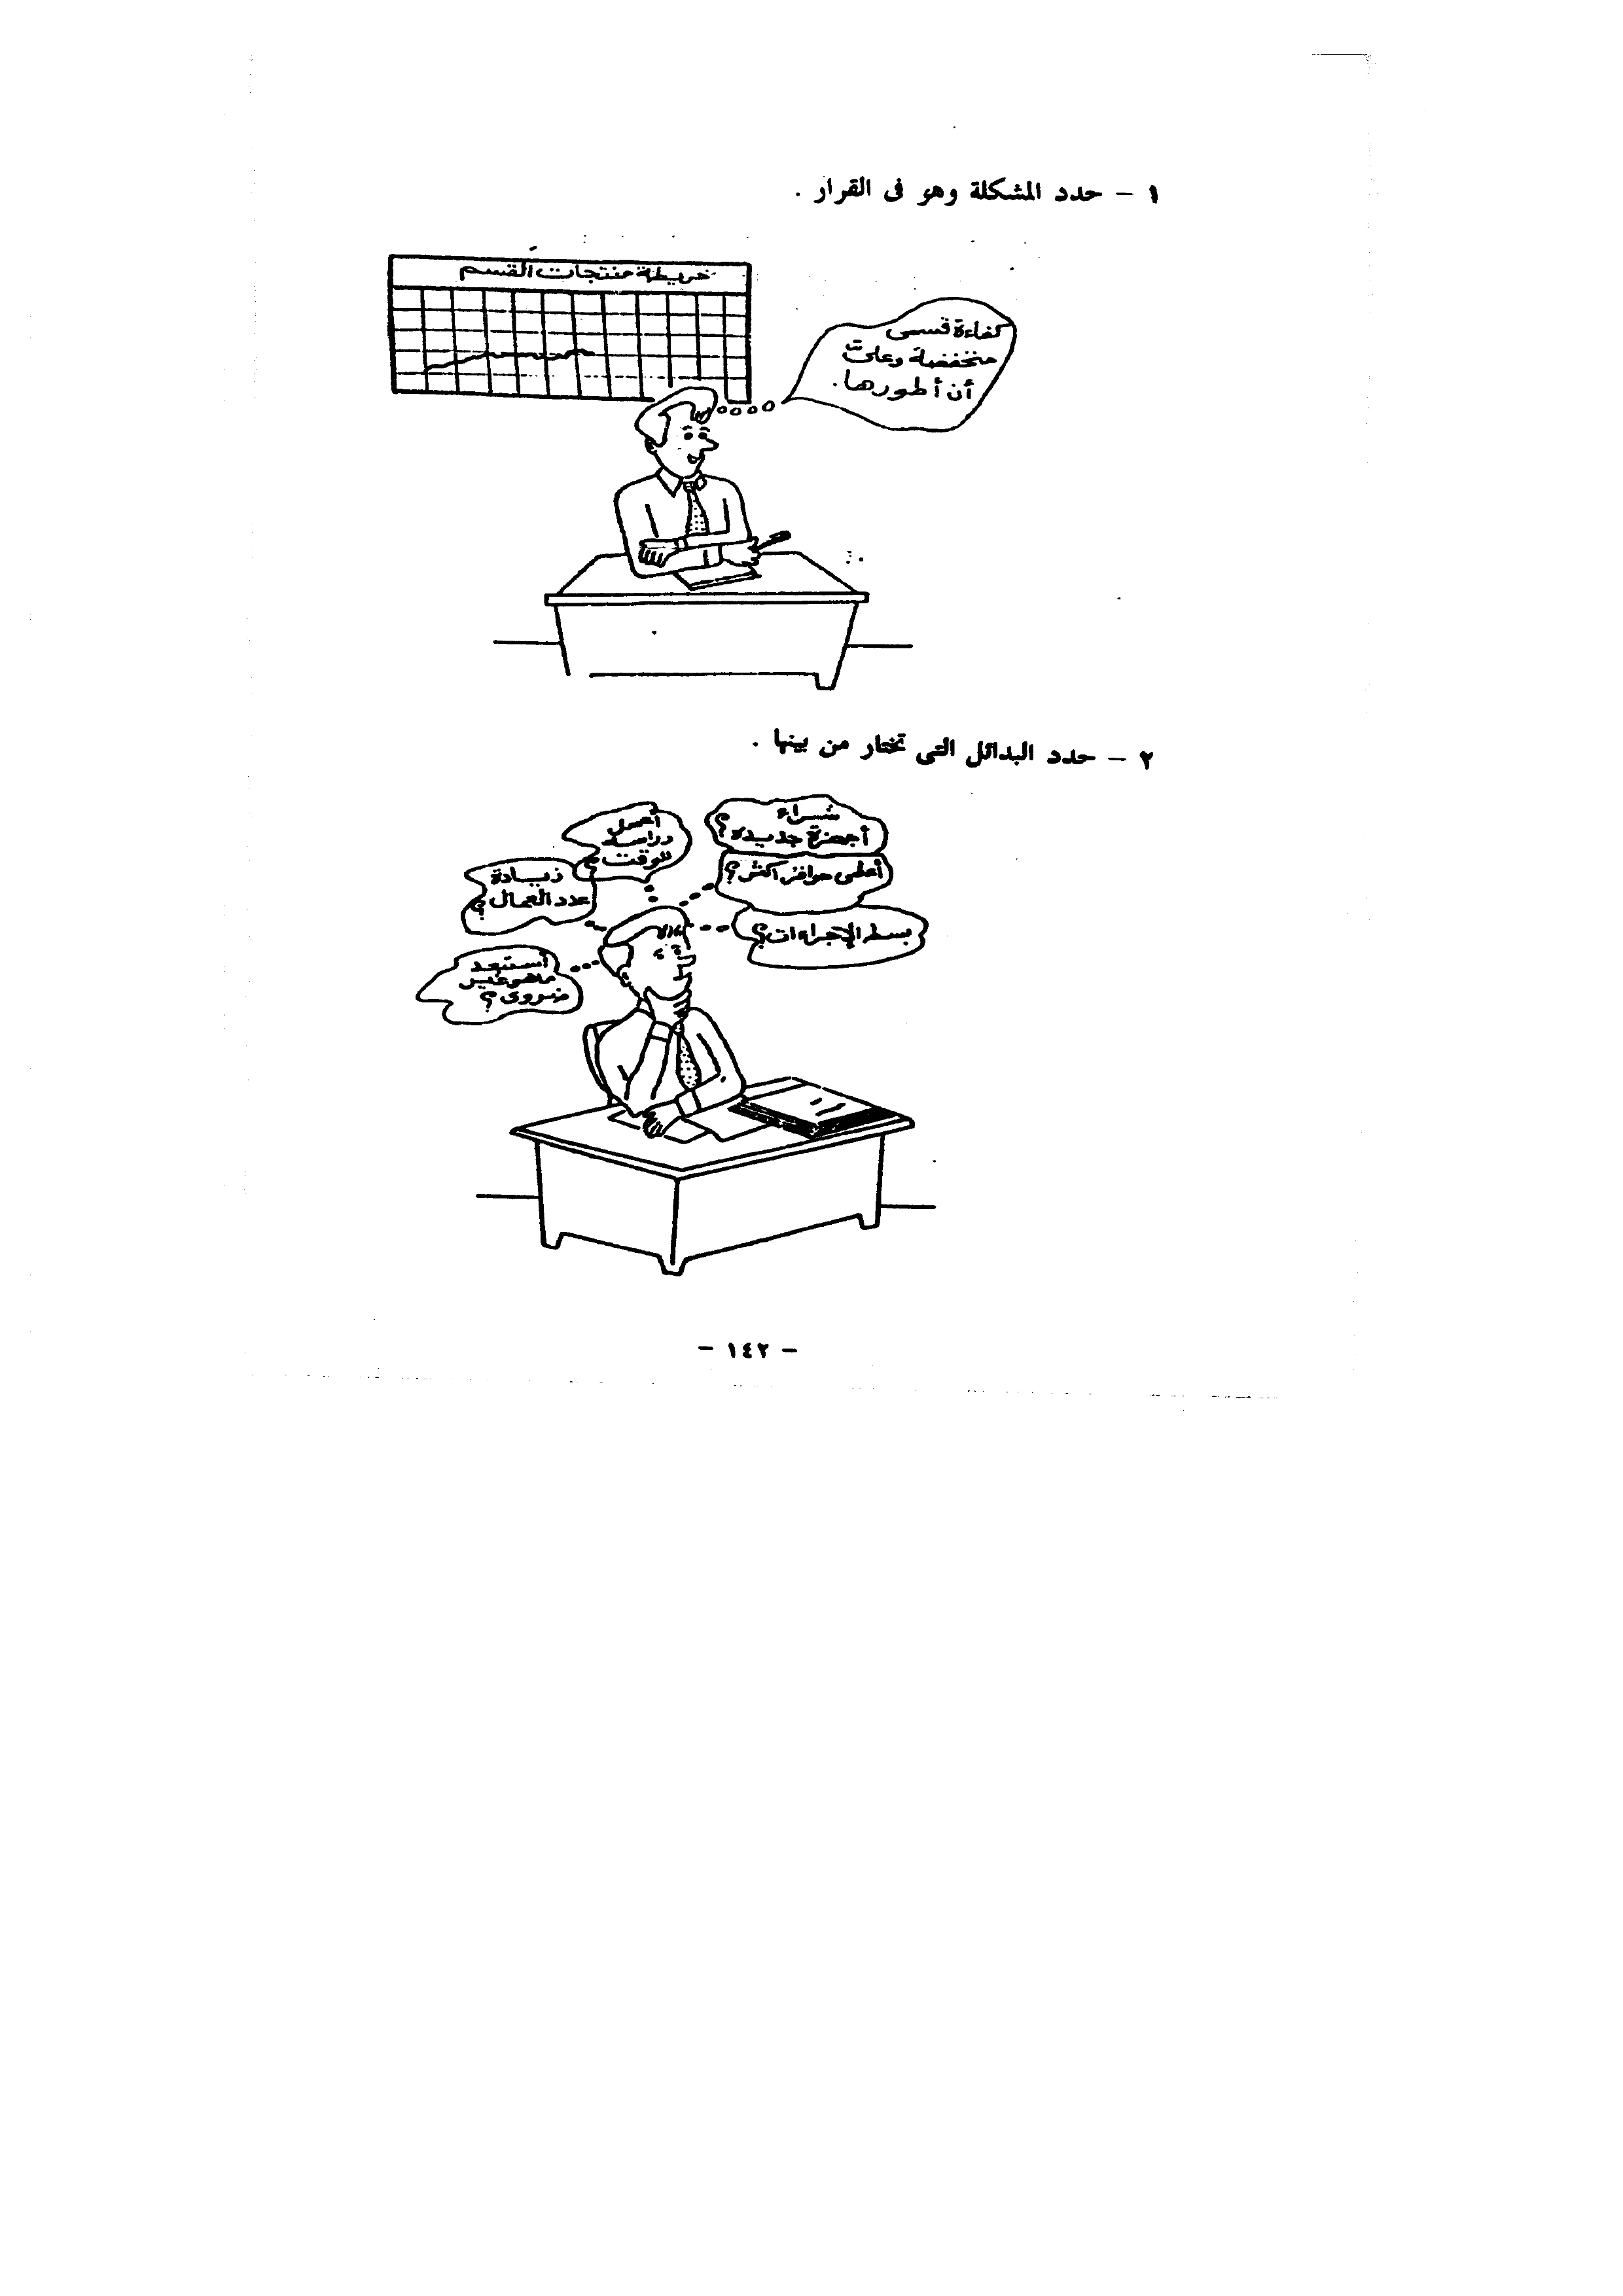 ١ - حدد المشكلة وهو فى القرار .
خريطة منتجات القسم
كفاءة قسمى
منخفضة وعلىّ
أن أطورها.
٢ - حدد البدائل التى تختار من بينها .
شراء
أجهزة جديدة؟
أعطى حوافز اكثر؟
بسط الإجراءات؟
أعمل
دراسة
للوقت؟
زيادة
عدد العمال؟
أستبعد
ماهو غير
ضروى؟
- ١٤٢ -